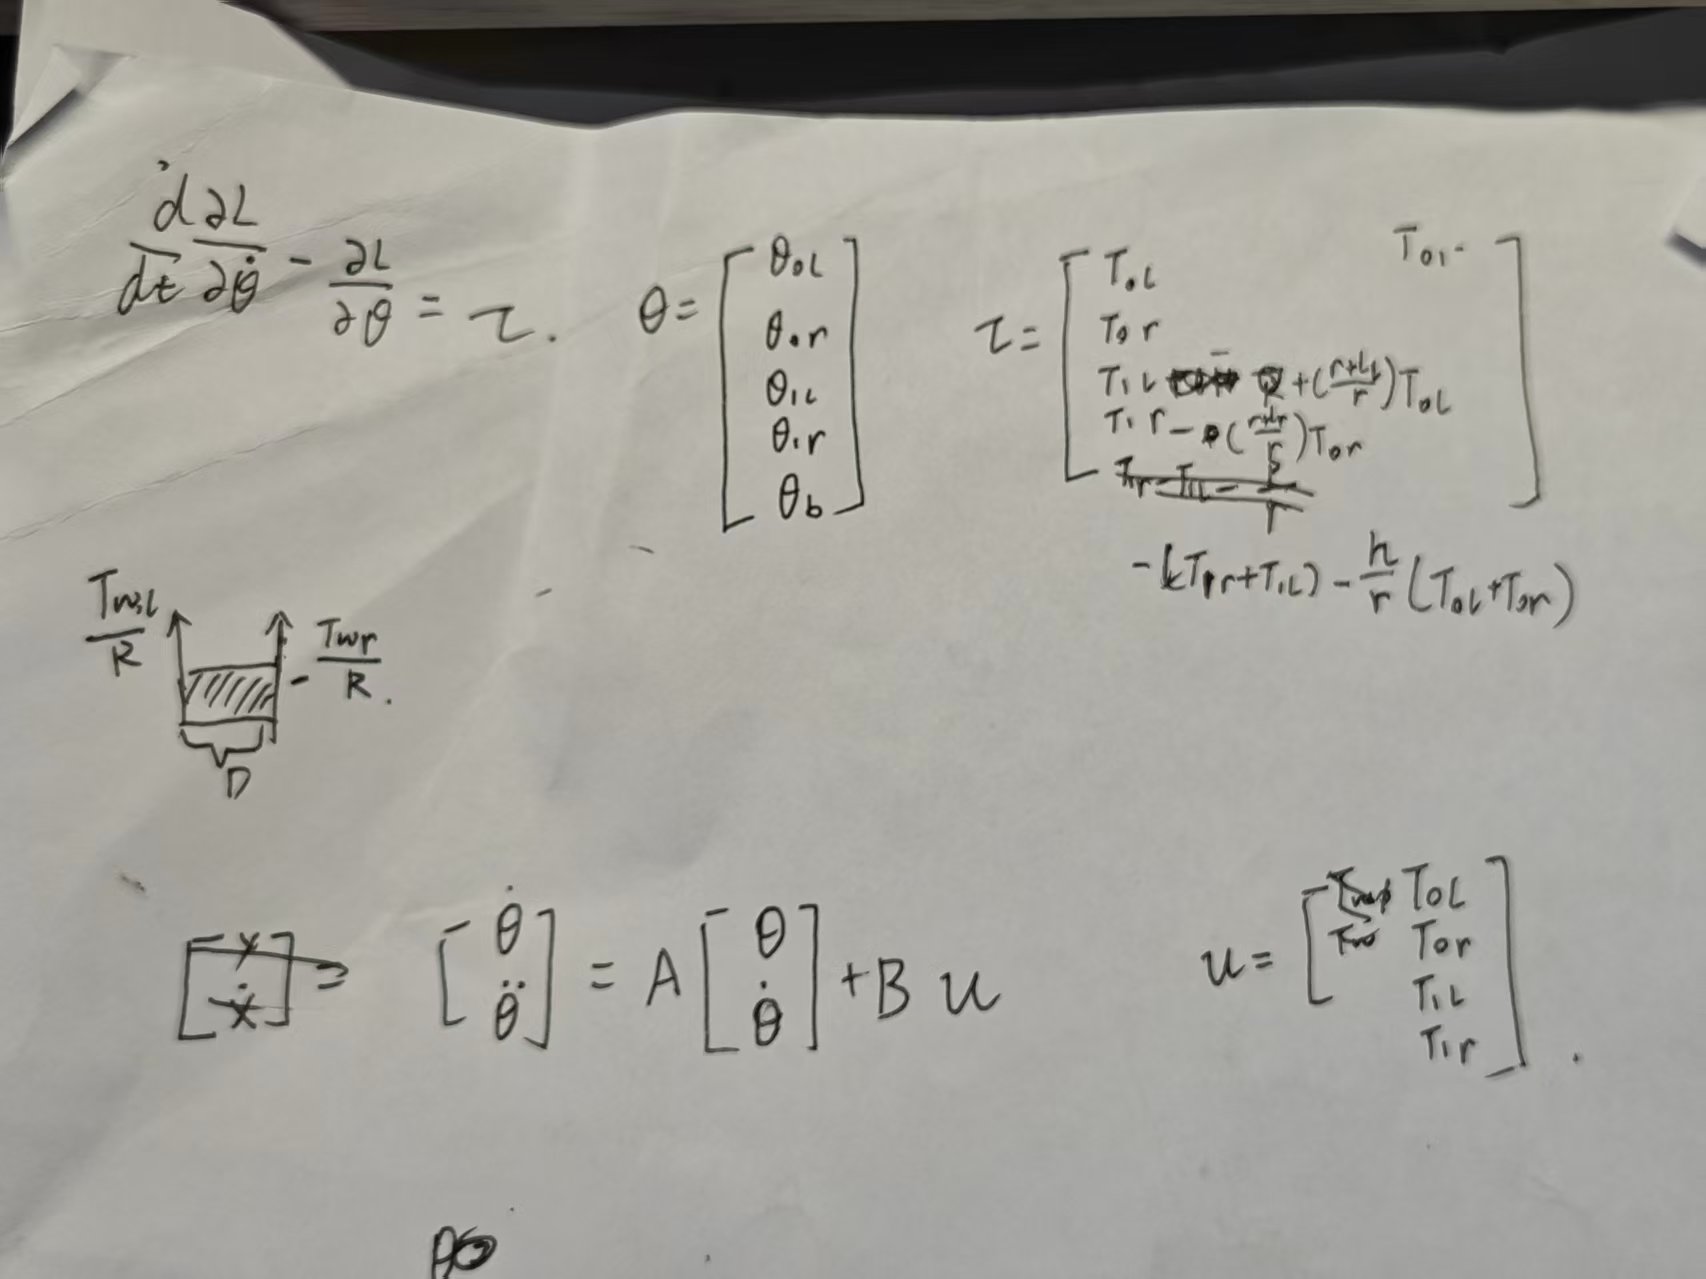 d/dt ∂L/∂θ̇ - ∂L/∂θ = τ.
θ = [θ₀L
θ₀r
θ₁L
θ₁r
θb]
τ = [T₀L T₀₁-
T₀r
T₁L +((r+L_L)/r)T₀L
T₁r - ((r+Lr)/r)T₀r
-(T₁r+T₁L) - h/r (T₀L+T₀r)]
TwL/R
Twr/R.
D
[x
ẋ] =
[θ̇
θ̈] = A[θ
θ̇] + B u
u = [T₀L
T₀r
T₁L
T₁r].